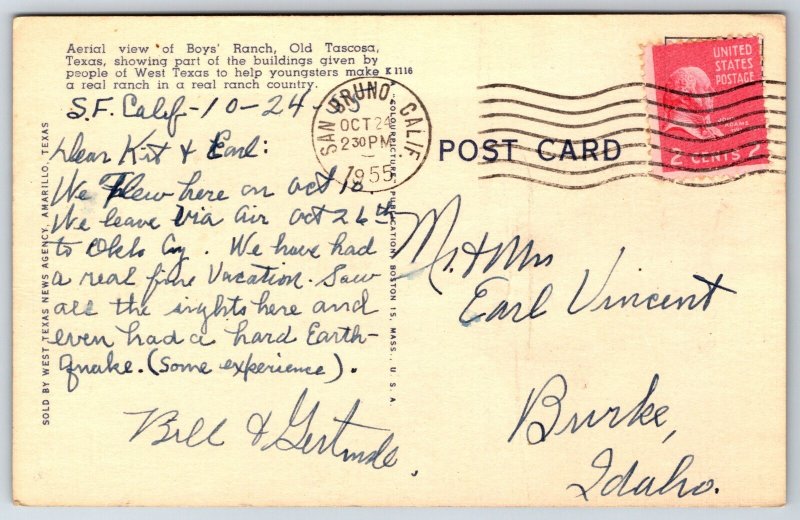 Aerial view of Boys' Ranch, Old Tascosa,
Texas, showing part of the buildings given by
people of West Texas to help youngsters make K1116
a real ranch in a real ranch country.
S.F. Calif-10-24-
Dear Kit & Earl:
We Flew here on Oct 18
We leave Via Air Oct 26th
to Okla Cy. We have had
a real fine Vacation. Saw
all the sights here and
even had a hard Earth-
quake. (Some experience).
Bill & Gertrude.
SOLD BY WEST TEXAS NEWS AGENCY, AMARILLO, TEXAS
"COLOURPICTURE" PUBLICATION, BOSTON 15, MASS., U.S.A.
SAN BRUNO, CALIF
OCT 24
2 30 PM
1955
POST CARD
UNITED
STATES
POSTAGE
JOHN
ADAMS
2 CENTS 2
Mr. & Mrs
Earl Vincent
Burke,
Idaho.